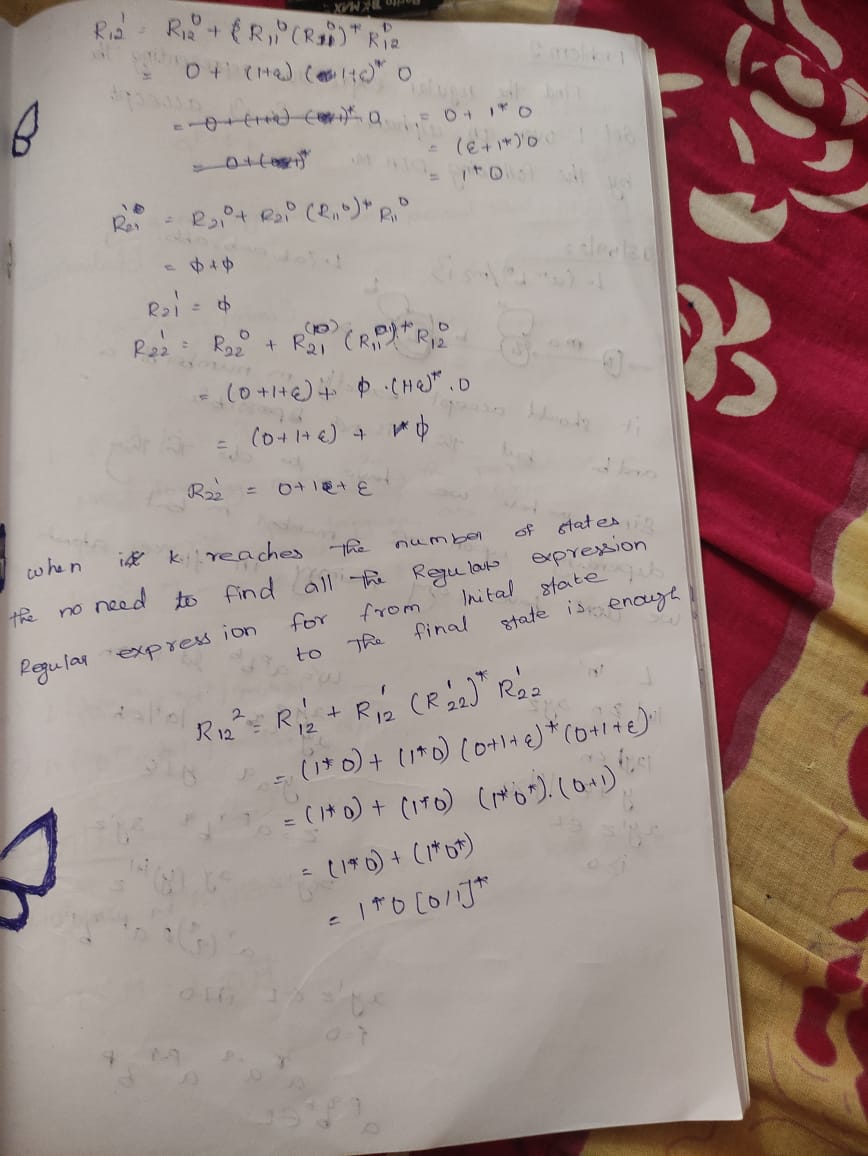 R₁₂¹ = R₁₂⁰ + R₁₁⁰ (R₁₁⁰)* R₁₂⁰
= 0 + (1+ε) (1+ε)* 0
= 0 + 1* 0
= (ε + 1*) 0
= 1* 0
R₂₁¹ = R₂₁⁰ + R₂₁⁰ (R₁₁⁰)* R₁₁⁰
= ϕ + ϕ
R₂₁¹ = ϕ
R₂₂¹ = R₂₂⁰ + R₂₁⁰ (R₁₁⁰)* R₁₂⁰
= (0+1+ε) + ϕ . (1+ε)* . 0
= (0+1+ε) + ϕ
R₂₂¹ = 0+1+ε
when k reaches the number of states
the no need to find all the Regular expression
Regular expression for from Inital state
to the final state is enough
R₁₂² = R₁₂¹ + R₁₂¹ (R₂₂¹)* R₂₂¹
= (1* 0) + (1* 0) (0+1+ε)* (0+1+ε)
= (1* 0) + (1* 0) (1* 0*). (0+1)
= (1* 0) + (1* 0*)
= 1* 0 [0/1]*